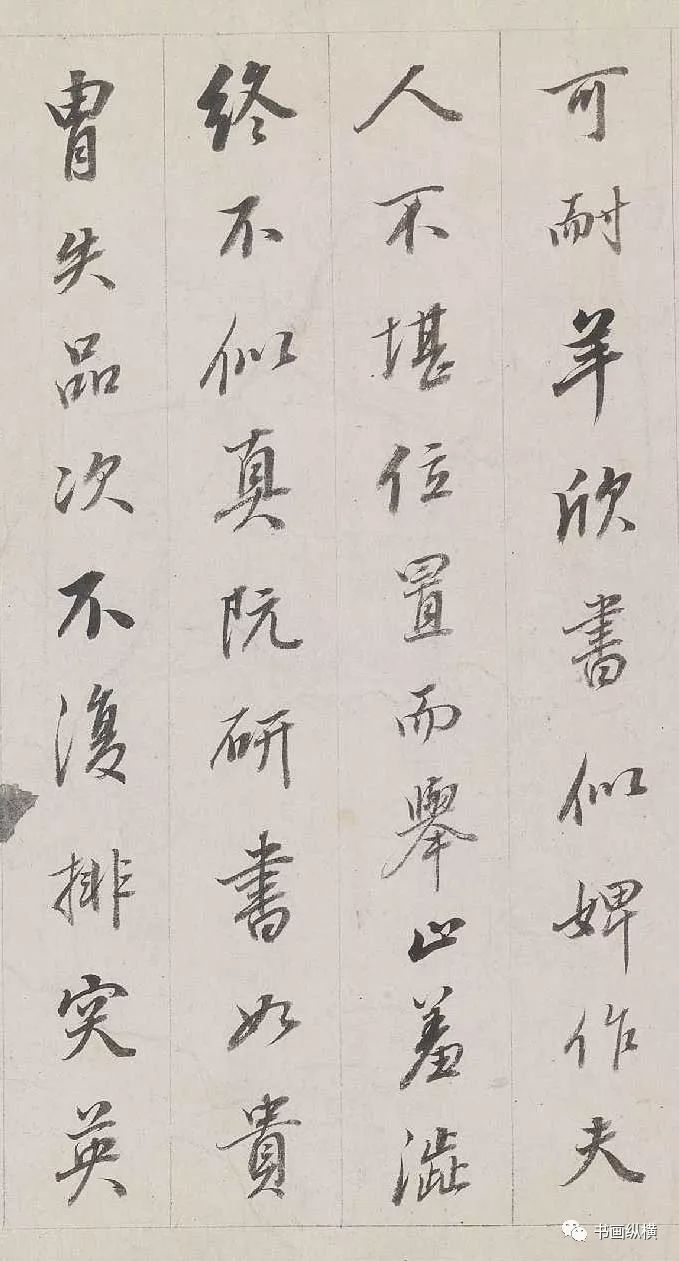 可耐羊欣書似婢作夫
人不堪位置而舉止羞澁
終不似真阮研書如貴
胄失品次不復排突英
书画纵横